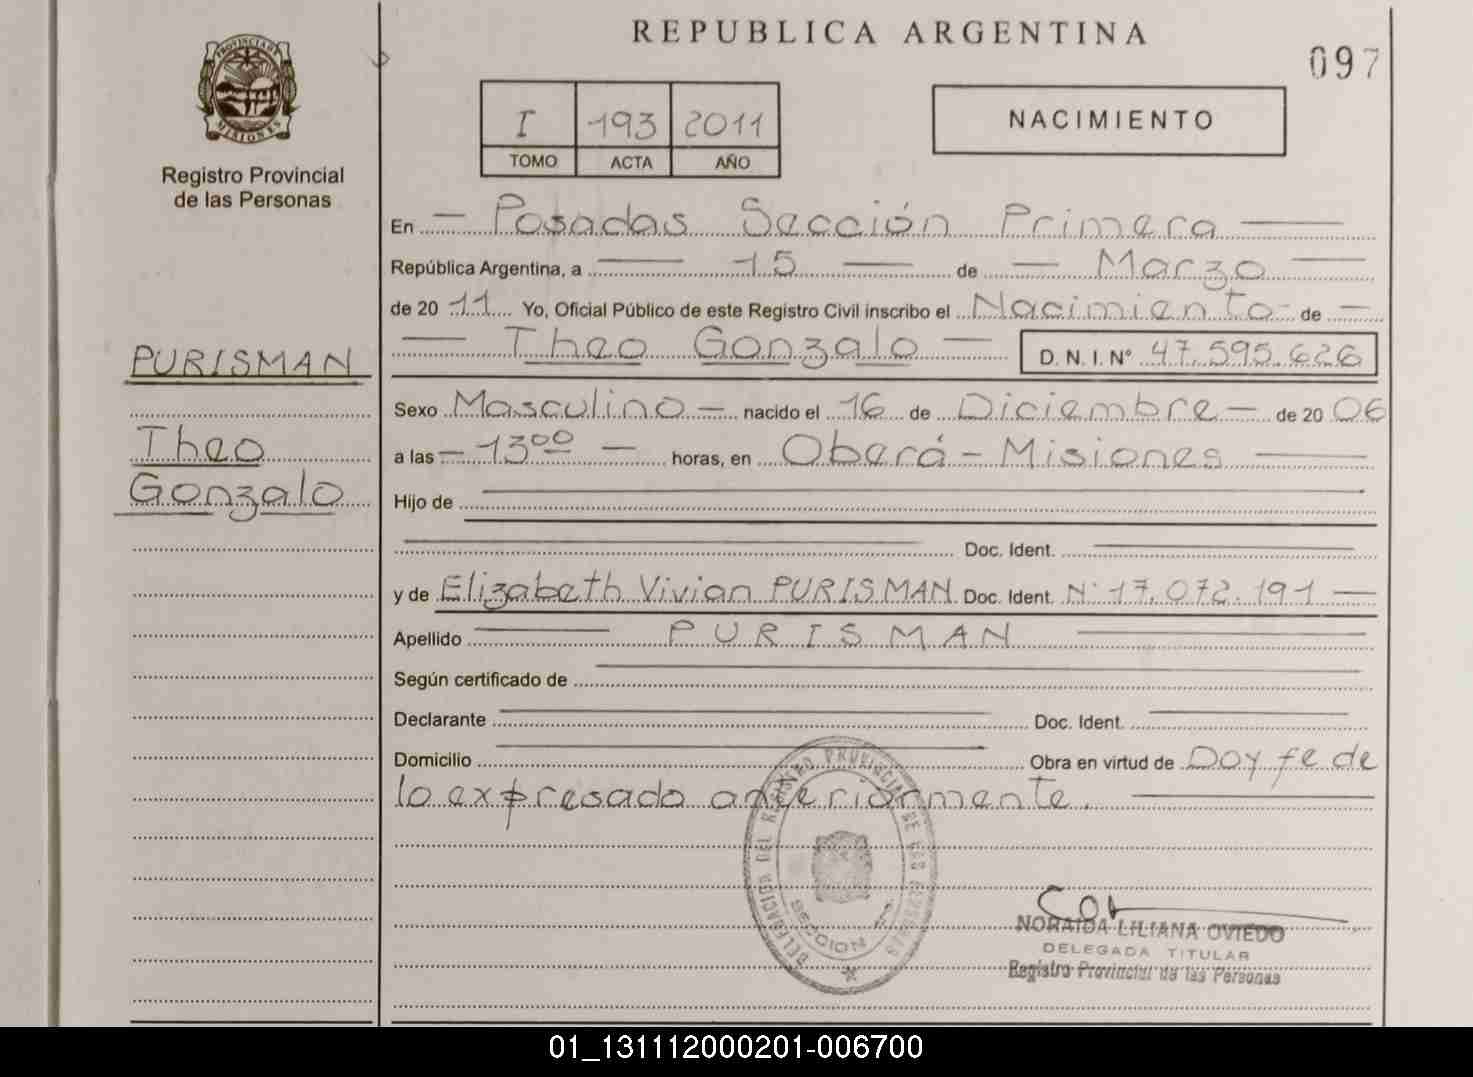 REPUBLICA ARGENTINA
097
PROVINCIA DE MISIONES
Registro Provincial
de las Personas
I 193 2011
TOMO ACTA AÑO
NACIMIENTO
En Posadas Sección Primera
República Argentina, a 15 de Marzo
de 2011 Yo, Oficial Público de este Registro Civil inscribo el Nacimiento de
Theo Gonzalo D. N. I. Nº 47.595.626
PURISMAN
Theo
Gonzalo
Sexo Masculino nacido el 16 de Diciembre de 2006
a las 13 00 horas, en Oberá - Misiones
Hijo de
Doc. Ident.
y de Elizabeth Vivian PURISMAN Doc. Ident. Nº 17.072.191
Apellido PURISMAN
Según certificado de
Declarante Doc. Ident.
Domicilio Obra en virtud de Doy fe de
lo expresado anteriormente.
DELEGACION DEL REGISTRO PROVINCIAL DE LAS PERSONAS
SECCION
NORAIDA LILIANA OVIEDO
DELEGADA TITULAR
Registro Provincial de las Personas
01_131112000201-006700